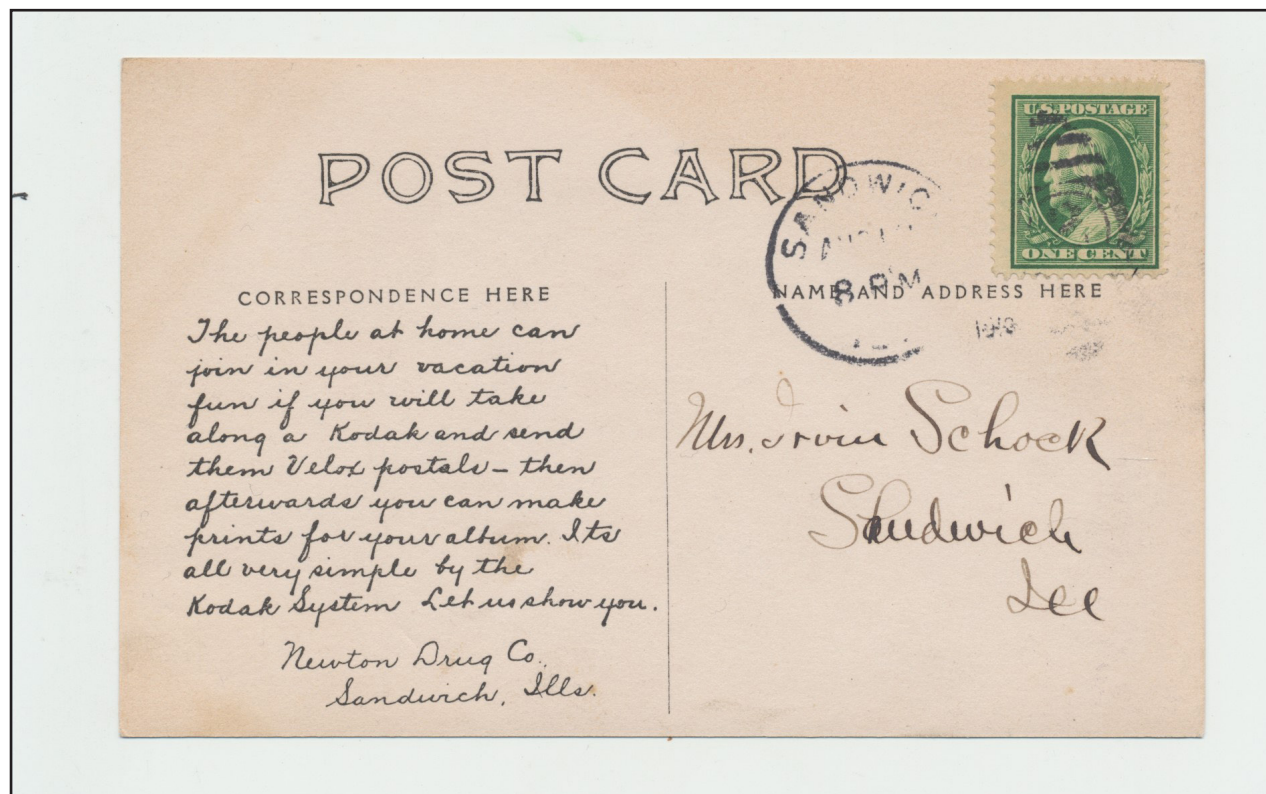 U.S. POSTAGE
ONE CENT
POST CARD
8 PM
CORRESPONDENCE HERE
The people at home can
join in your vacation
fun if you will take
along a Kodak and send
them Velox postals – then
afterwards you can make
prints for your album. Its
all very simple by the
Kodak System Let us show you.
Newton Drug Co.
Sandwich, Ills.
NAME AND ADDRESS HERE
Mrs. Irvin Schock
Sandwich
Ill